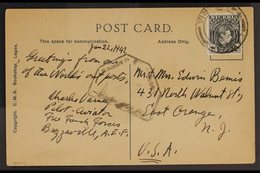 POST CARD.
This space for communication.
Address Only.
Jan 22, 1942
Greetings from one
of the World's outposts,
Charles
Pilot-Aviator
Free French Forces
Brazzaville, A.E.F.
Mr & Mrs. Edwin Bemis
431 North Walnut St.,
East Orange,
N.J.
U.S.A.
Copyright. C.M.S. Bookshop, Lagos.